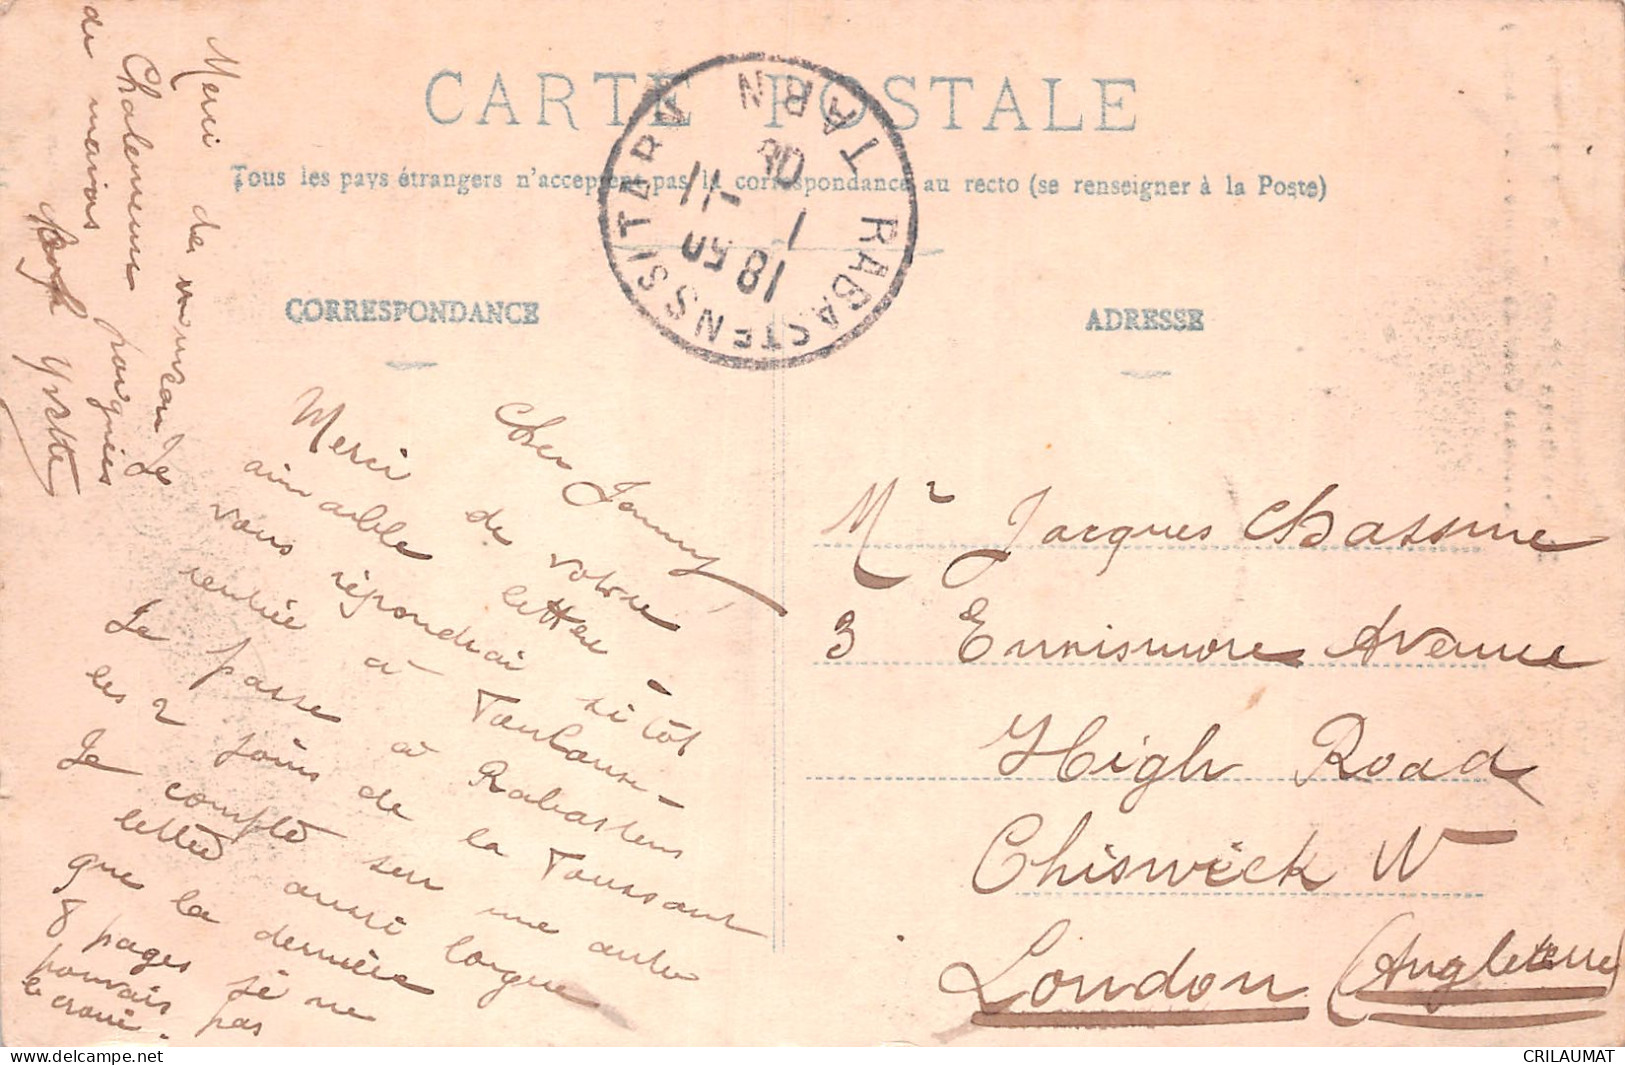 CARTE POSTALE
Tous les pays étrangers n'acceptent pas la correspondance au recto (se renseigner à la Poste)
CORRESPONDANCE
ADRESSE
RABASTENS S/TARN TARN
18 50
1 -11
Cher Jenny,
Merci de votre
aimable lettre -
vous répondrai sitôt
rentrée à Toulouse -
Je passe à Rabastens
les 2 jours de la Toussaint
Je compte sur une autre
lettre aussi longue
que la dernière
8 pages je ne
pouvais pas
le croire.
Merci de nouveau de
Chaleureuses poignées
de mains
Yvette
Mr Jacques Chassme
3 Ennismore Avenue
High Road
Chiswick W
London (Angleterre)
CRILAUMAT